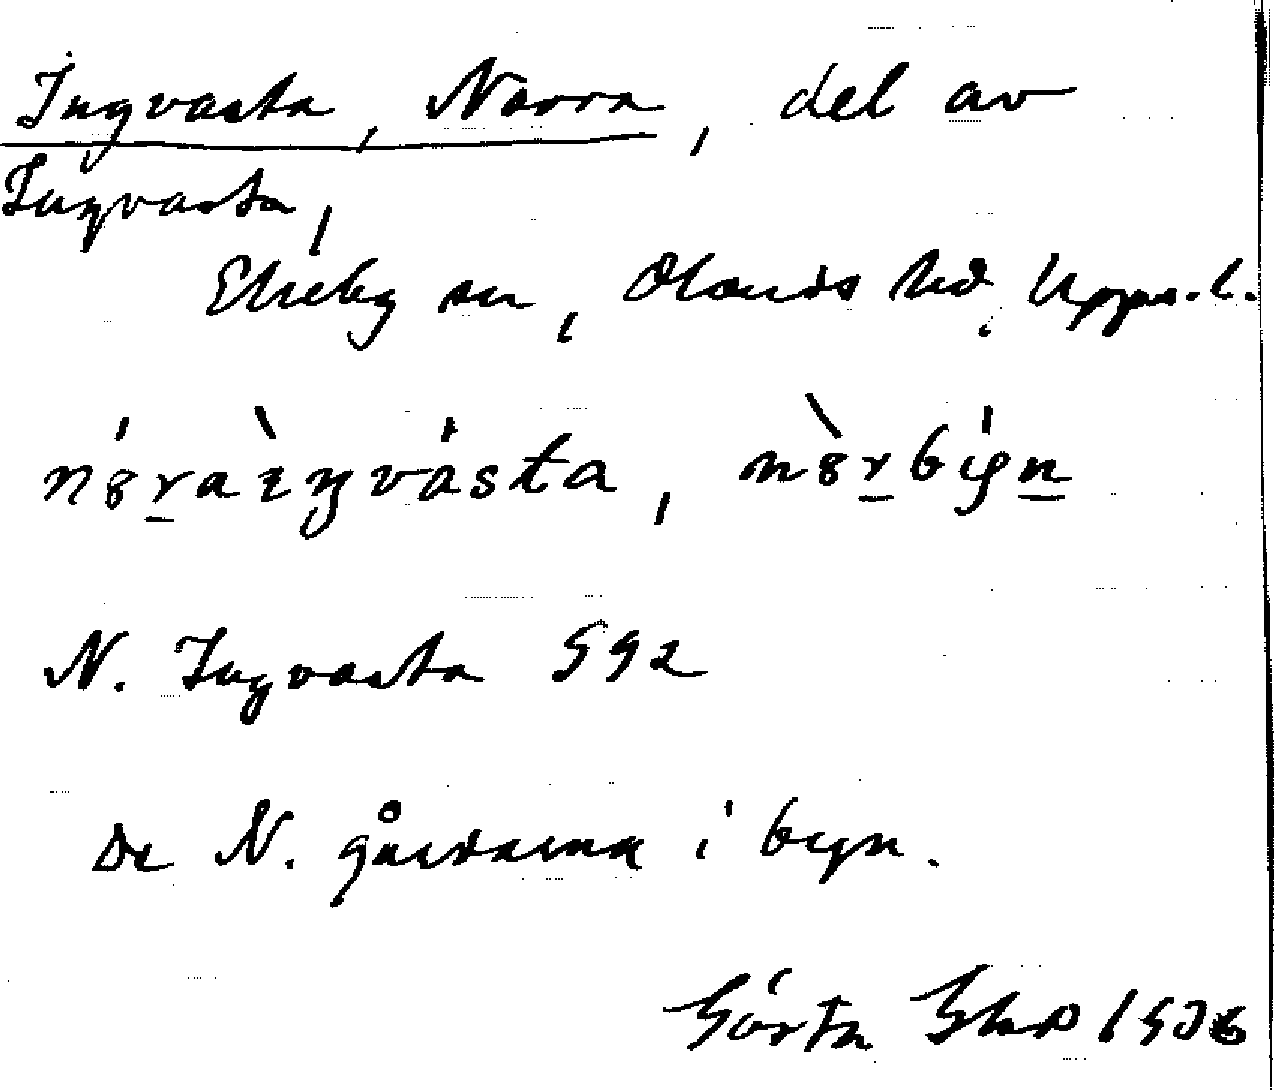 Ingvasta, Norra, del av
Ingvasta,
Ekeby sn, Olands hd, Upps.l.
N. Ingvasta 592
De N. gårdarna i byn.
Gösta 1936